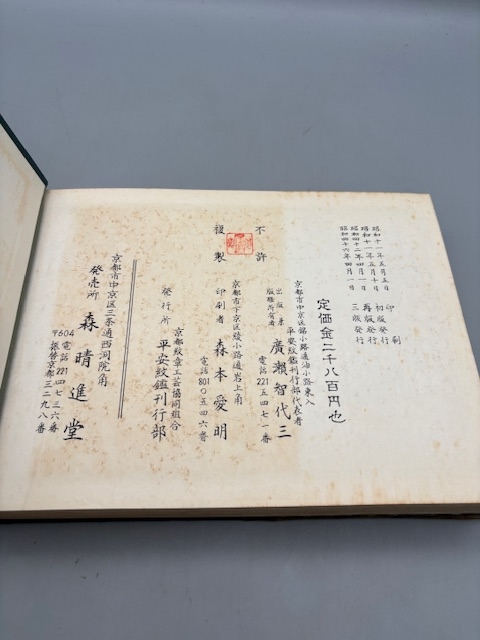 昭和十一年五月五日 印刷
昭和十一年五月十日 初版発行
昭和四十二年四月一日 再版発行
昭和四十六年四月一日 三版発行
定価金二千八百円也
不許
複製
京都市中京区錦小路通油小路東入
平安紋鑑刊行部代表者
出版兼
版権所有者 廣瀬智代三
電話221五四七一番
京都市下京区綾小路通岩上角
印刷者 森本愛明
電話801〇五四六番
京都紋章工芸協同組合
発行所 平安紋鑑刊行部
京都市中京区三条通西洞院角
発売所 森晴進堂
〒604 電話221四七三六番
振替京都三二九八番